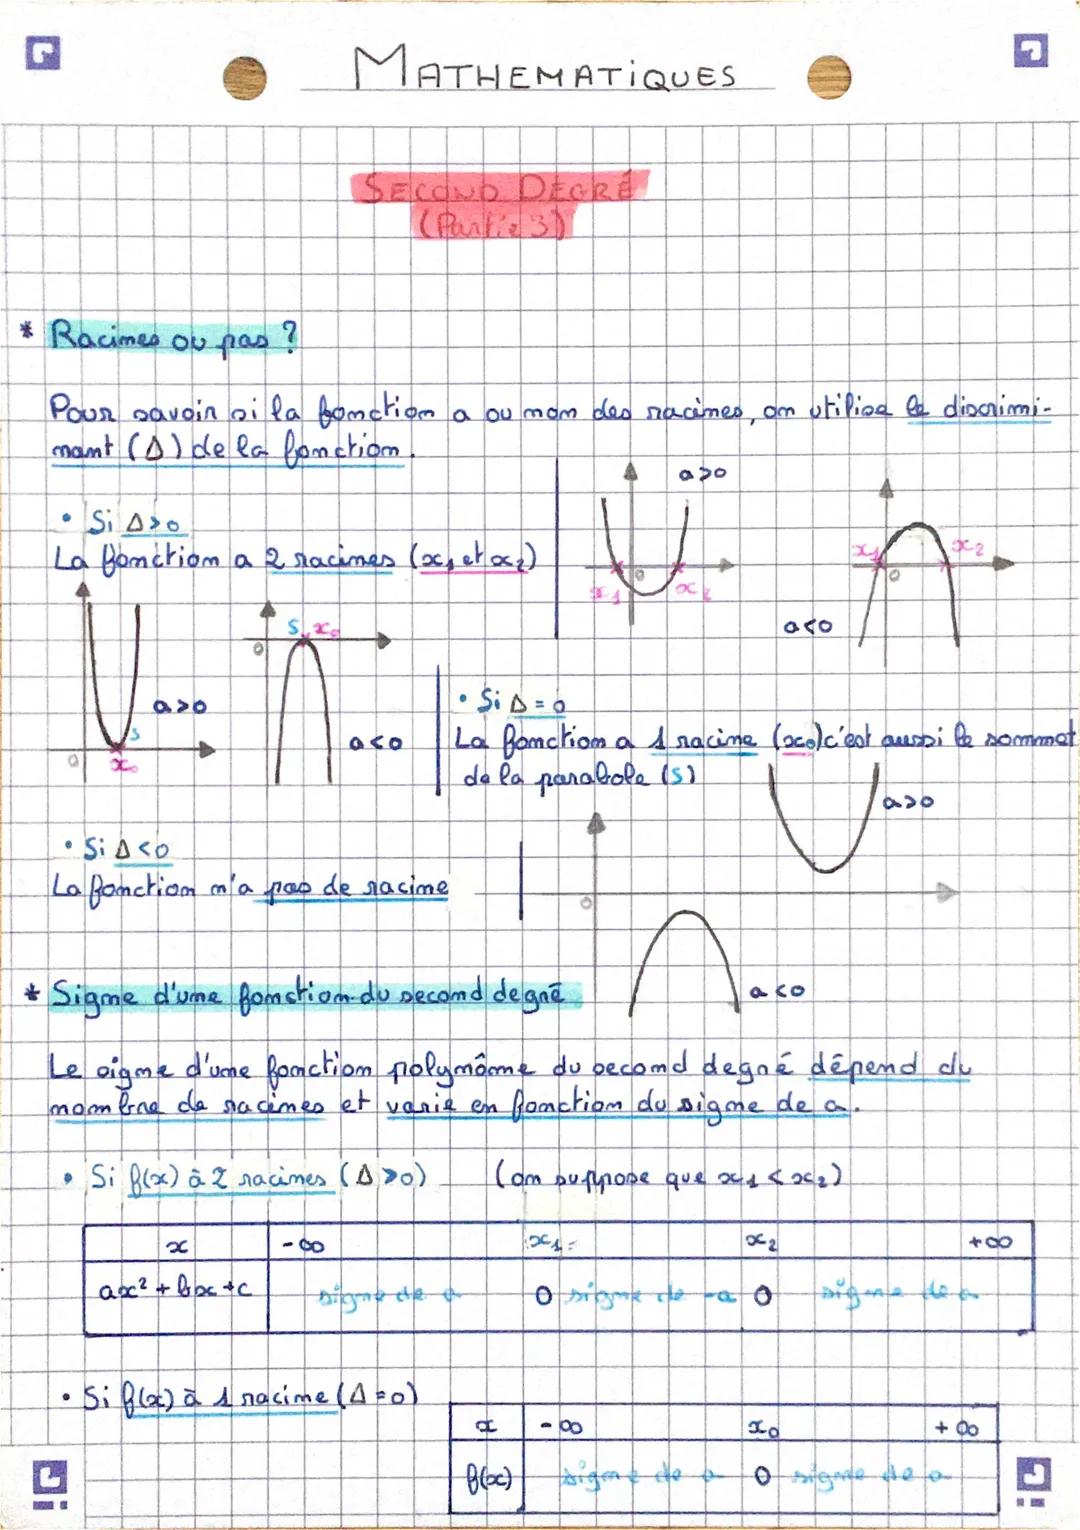 MATHEMATIQUES
SECOND DEGRÉ
(Partie 3)
* Racines ou pas ?
Pour savoir si la fonction a ou non des racines, on utilise le discrimi-
nant (Δ) de la fonction.
a>0
• Si Δ>0
La fonction a 2 racines (x₁ et x₂)
x₁ 0 x₂
x₁ 0 x₂
a<0
S x₀
0
a>0
S
0 x₀
a<0
• Si Δ = 0
La fonction a 1 racine (x₀) c'est aussi le sommet
de la parabole (S)
a>0
• Si Δ<0
La fonction n'a pas de racine
0
a<0
* Signe d'une fonction du second degré
Le signe d'une fonction polynôme du second degré dépend du
nombre de racines et varie en fonction du signe de a.
• Si f(x) à 2 racines (Δ>0) (on suppose que x₁ < x₂)
x -∞ x₁ x₂ +∞
ax² + bx + c signe de a 0 signe de -a 0 signe de a
• Si f(x) à 1 racine (Δ=0)
x -∞ x₀ +∞
f(x) signe de a 0 signe de a